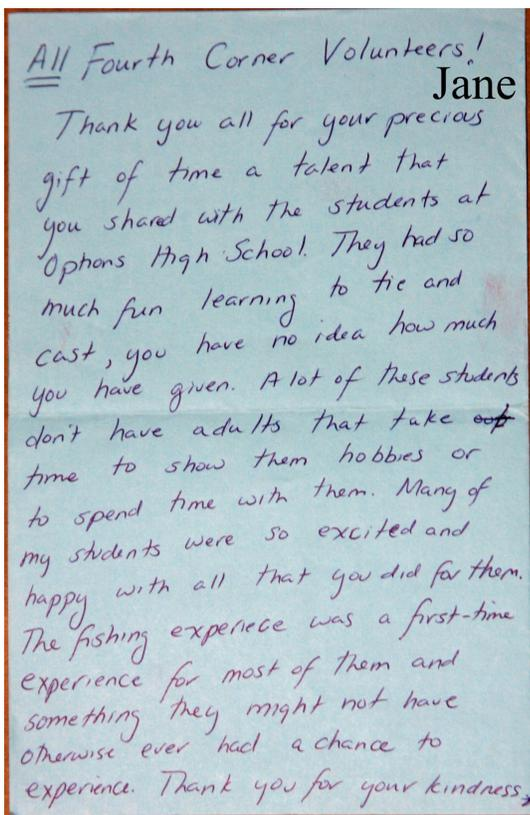 All Fourth Corner Volunteers!
Jane
Thank you all for your precious
gift of time a talent that
you shared with the students at
Options High School. They had so
much fun learning to tie and
cast, you have no idea how much
you have given. A lot of these students
don't have adults that take
time to show them hobbies or
to spend time with them. Many of
my students were so excited and
happy with all that you did for them.
The fishing experiece was a first-time
experience for most of them and
something they might not have
otherwise ever had a chance to
experience. Thank you for your kindness,